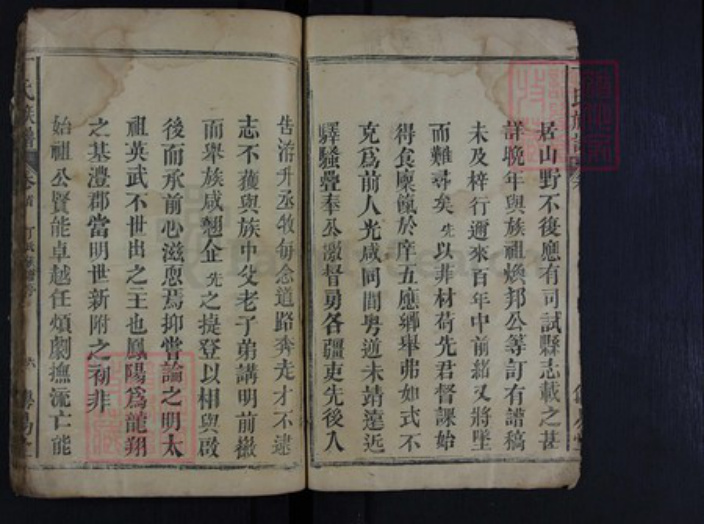 居山野不後應有司試縣志載之甚
詳晚年與族祖煥邦公等訂有譜稿
未及梓行邇來百年中前緒又將墜
而難尋矣先以菲材荷先君督課始
得食廩餼於庠五應鄉舉弗如式不
克爲前人光咸同間粵逆未靖遠近
驛騷疊奉丞激督勇各疆吏先後入
告洊升丞牧每念道路奔走才不逮
志不獲與族中父老子弟講明前徽
而舉族咸翹企先之提登以相與啟
後而承前心滋恧焉抑嘗論之明太
祖英武不世出之主也鳳陽爲龍翔
之基澧郡當明世新附之初非
始祖公賢能卓越任煩劇撫流亡能
氏族譜
六